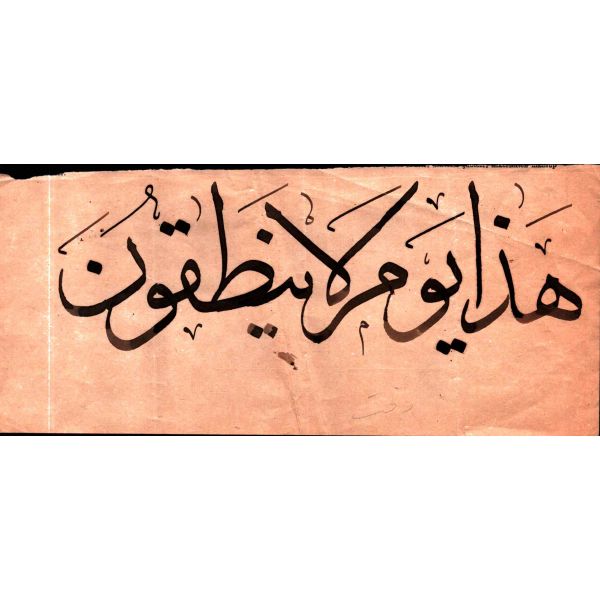 هذا يوم لا ينطقون